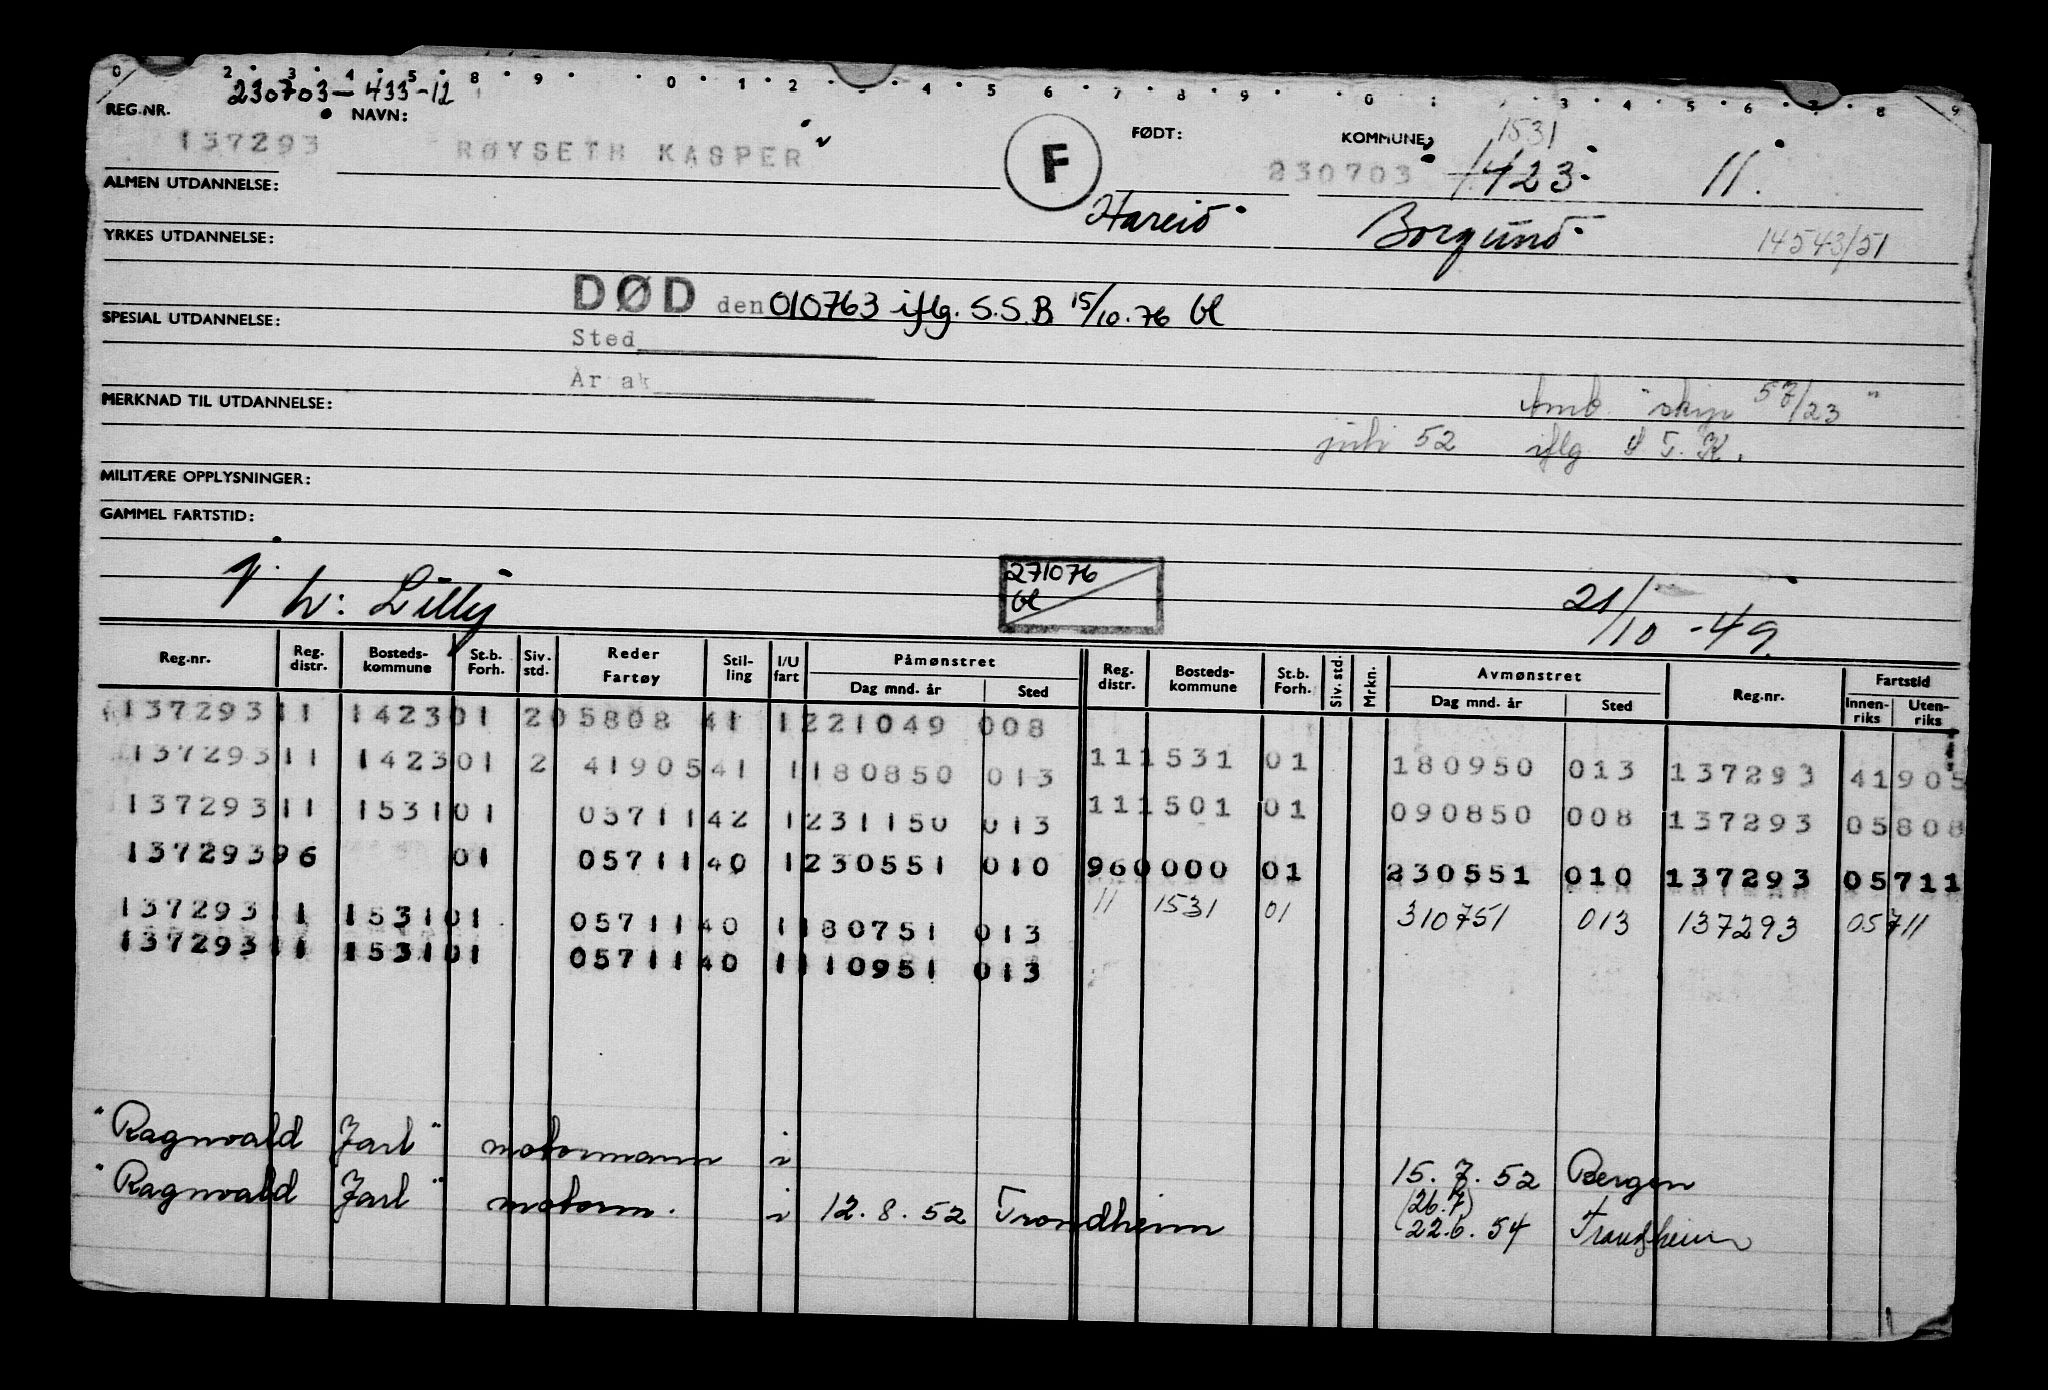 0 2 3 4 5 8 9 0 1 2 4 5 6 7 8 9 0 1 3 4 5 6 7 8 9
230703-433-12
REG.NR. NAVN: FØDT: KOMMUNE: 1531
137293 RØYSETH KASPER F 230703 1423 11.
ALMEN UTDANNELSE:
Hareid Borgund
YRKES UTDANNELSE: 14543/51
DØD den 010763 iflg. S.S.B 15/10.76 bl
SPESIAL UTDANNELSE:
Sted
År ak
"skip 57/23"
MERKNAD TIL UTDANNELSE:
juli 52 iflg S.T.K.
MILITÆRE OPPLYSNINGER:
GAMMEL FARTSTID:
g. h: Lilly 271076 bl 21/10 -49.
Reg.nr. Reg. distr. Bosteds-kommune St.b. Forh. Siv. std. Reder Fartøy Stil-ling I/U fart Påmønstret Dag mnd. år Sted Reg. distr. Bosteds-kommune St.b. Forh. Siv. std. Mrkn. Avmønstret Dag mnd. år Sted Reg.nr. Fartstid Innen-riks Uten-riks
137293 11 1423 01 2 05808 41 1 221049 008
137293 11 1423 01 2 41905 41 1 180850 013 11 1531 01 180950 013 137293 41905
137293 11 1531 01 05711 42 1 231150 013 11 1501 01 090850 008 137293 05808
137293 96 01 05711 40 1 230551 010 96 0000 01 230551 010 137293 05711
137293 11 1531 01 05711 40 1 180751 013 11 1531 01 310751 013 137293 05711
137293 11 1531 01 05711 40 1 110951 013
"Ragnvald Jarl" motormann i 15.7.52 Bergen
(26.7)
"Ragnvald Jarl" motorm. i 12.8.52 Trondheim 22.6.54 Trondheim